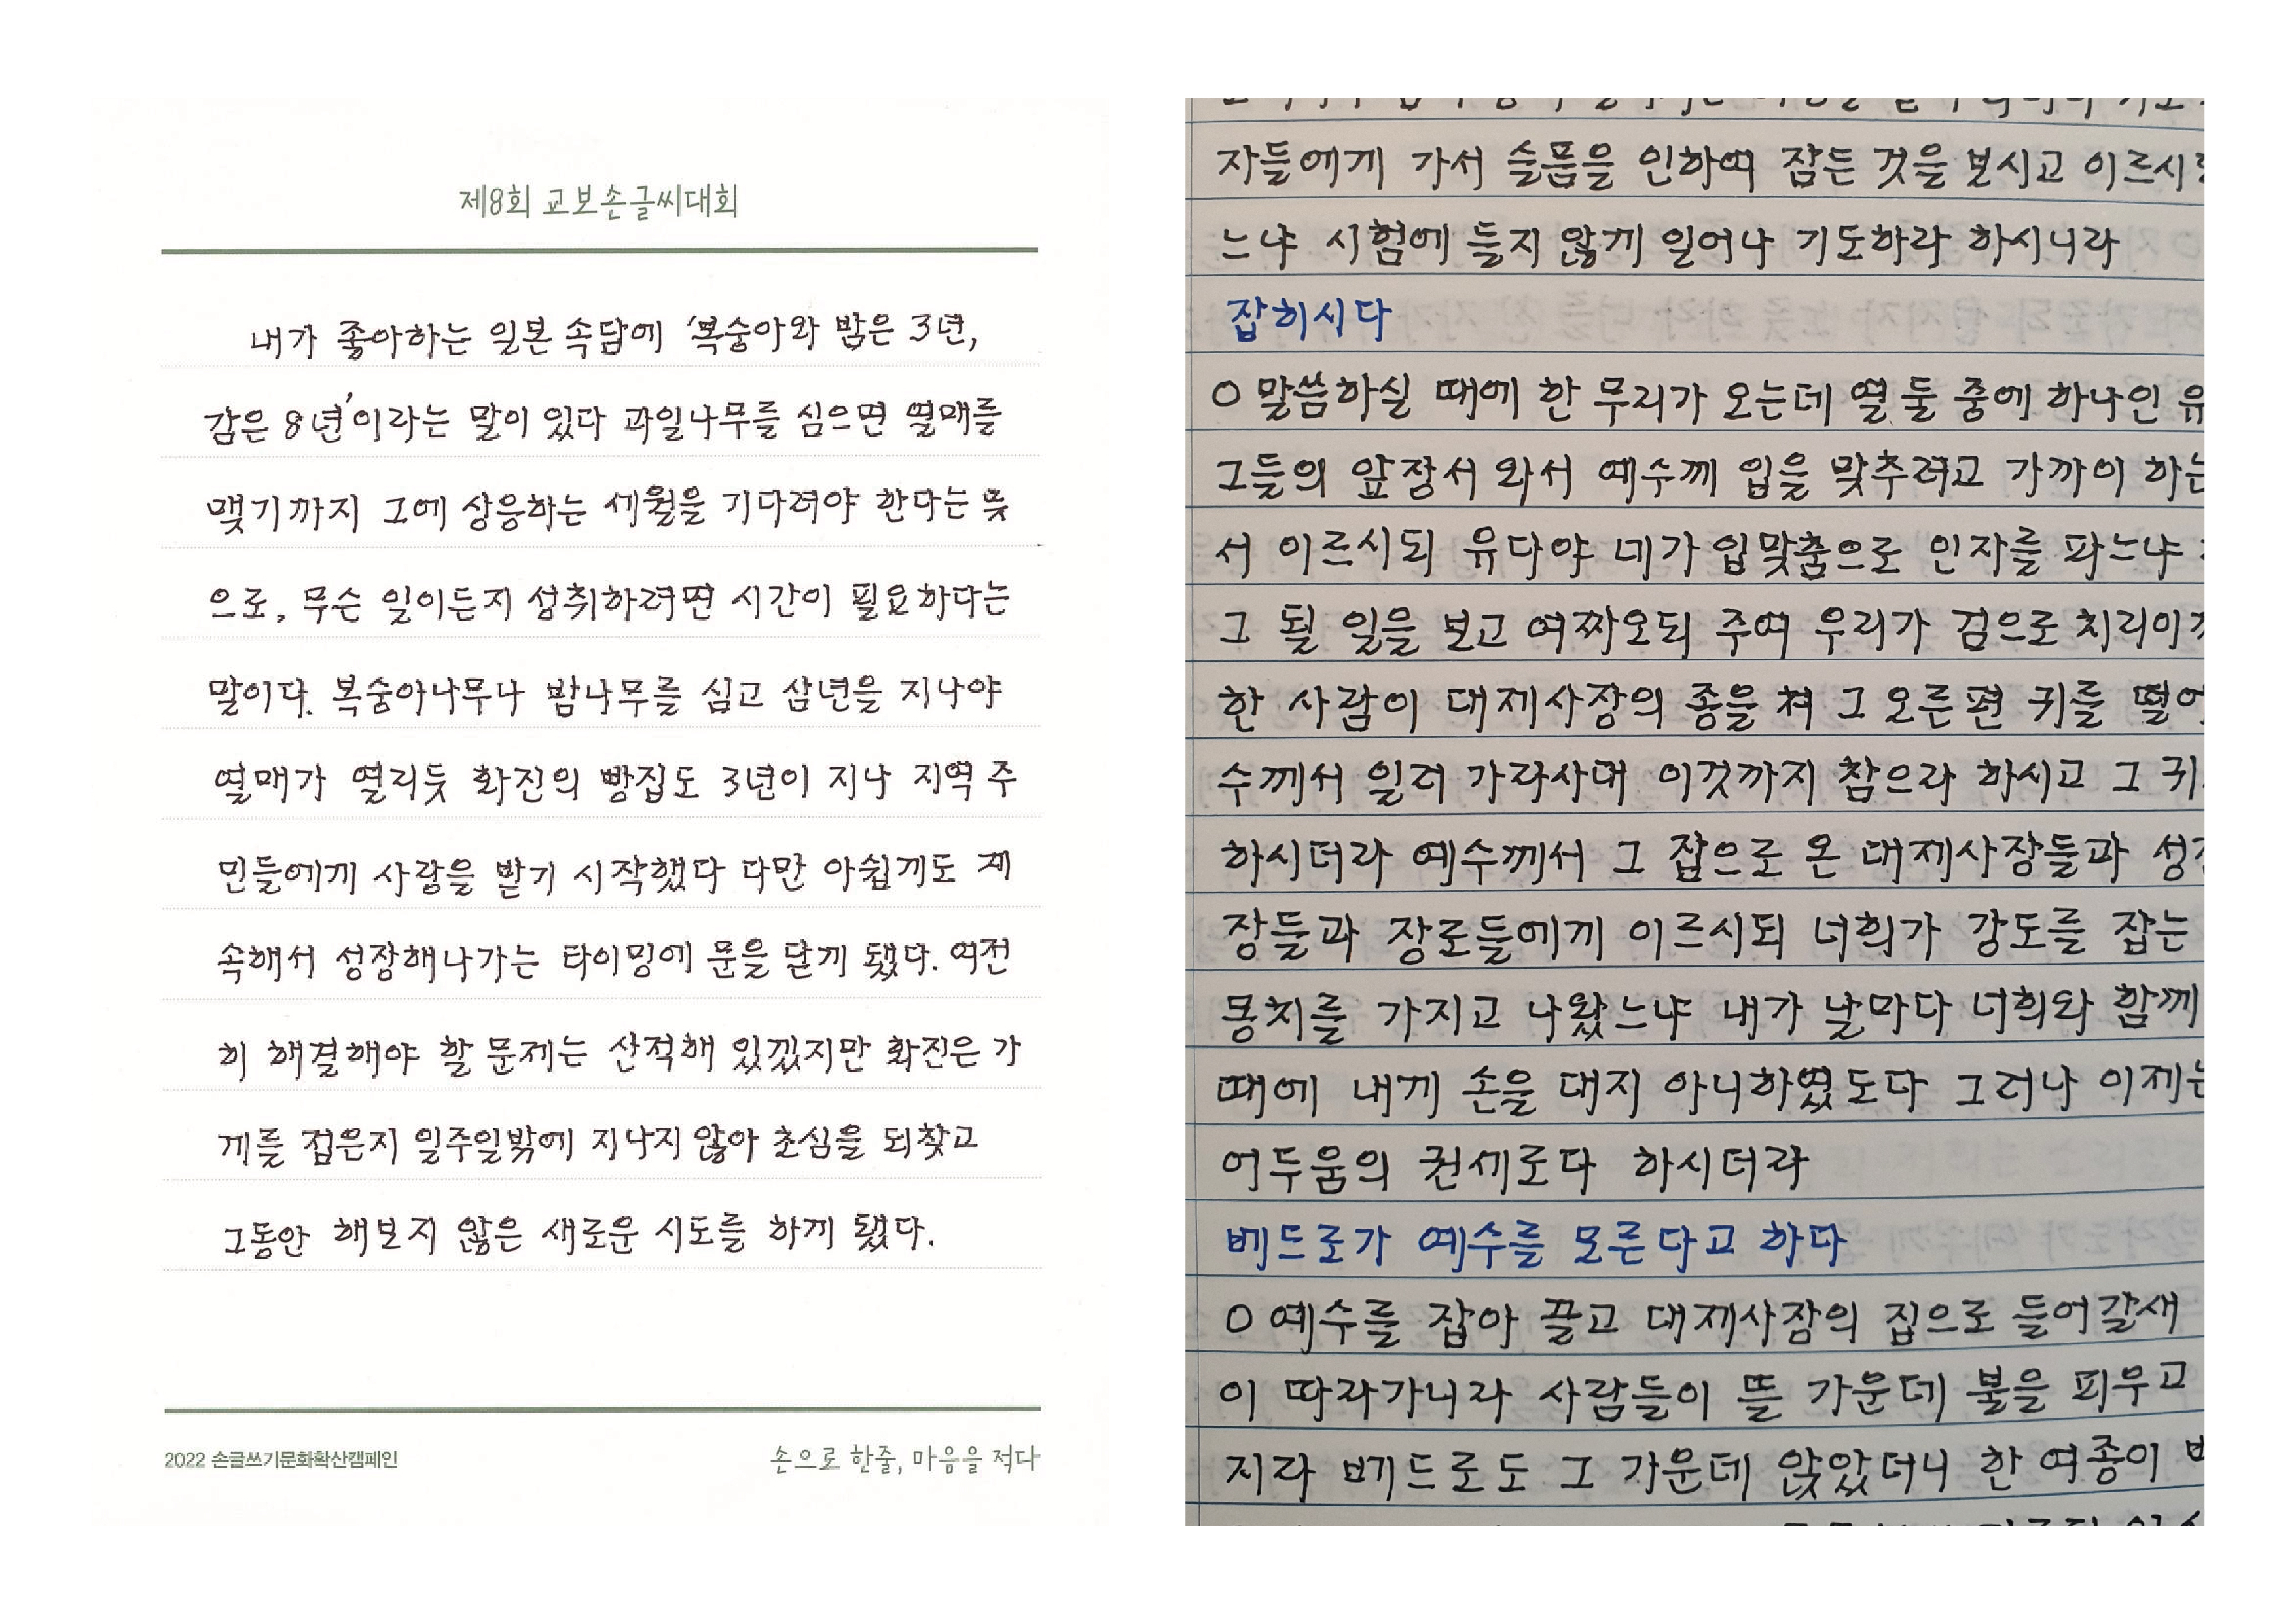 제8회 교보손글씨대회
내가 좋아하는 일본 속담에 '복숭아와 밤은 3년,
감은 8년'이라는 말이 있다 과일나무를 심으면 열매를
맺기까지 그에 상응하는 세월을 기다려야 한다는 뜻
으로, 무슨 일이든지 성취하려면 시간이 필요하다는
말이다. 복숭아나무나 밤나무를 심고 삼년을 지나야
열매가 열리듯 화진의 빵집도 3년이 지나 지역 주
민들에게 사랑을 받기 시작했다 다만 아쉽게도 계
속해서 성장해나가는 타이밍에 문을 닫게 됐다. 여전
히 해결해야 할 문제는 산적해 있겠지만 화진은 가
게를 접은지 일주일밖에 지나지 않아 초심을 되찾고
그동안 해보지 않은 새로운 시도를 하게 됐다.
2022 손글쓰기문화확산캠페인
손으로 한줄, 마음을 적다
자들에게 가서 슬픔을 인하여 잠든 것을 보시고 이르시
느냐 시험에 들지 않게 일어나 기도하라 하시니라
잡히시다
O 말씀하실 때에 한 무리가 오는데 열 둘 중에 하나인 유
그들의 앞장서 와서 예수께 입을 맞추려고 가까이 하는
서 이르시되 유다야 네가 입맞춤으로 인자를 파느냐
그 될 일을 보고 여짜오되 주여 우리가 검으로 치리이까
한 사람이 대제사장의 종을 쳐 그 오른편 귀를 떨어
수께서 일러 가라사대 이것까지 참으라 하시고 그 귀
하시더라 예수께서 그 잡으로 온 대제사장들과 성
장들과 장로들에게 이르시되 너희가 강도를 잡는
몽치를 가지고 나왔느냐 내가 날마다 너희와 함께
때에 내게 손을 대지 아니하였도다 그러나 이제는
어두움의 권세로다 하시더라
베드로가 예수를 모른다고 하다
O 예수를 잡아 끌고 대제사장의 집으로 들어갈새
이 따라가니라 사람들이 뜰 가운데 불을 피우고
지라 베드로도 그 가운데 앉았더니 한 여종이